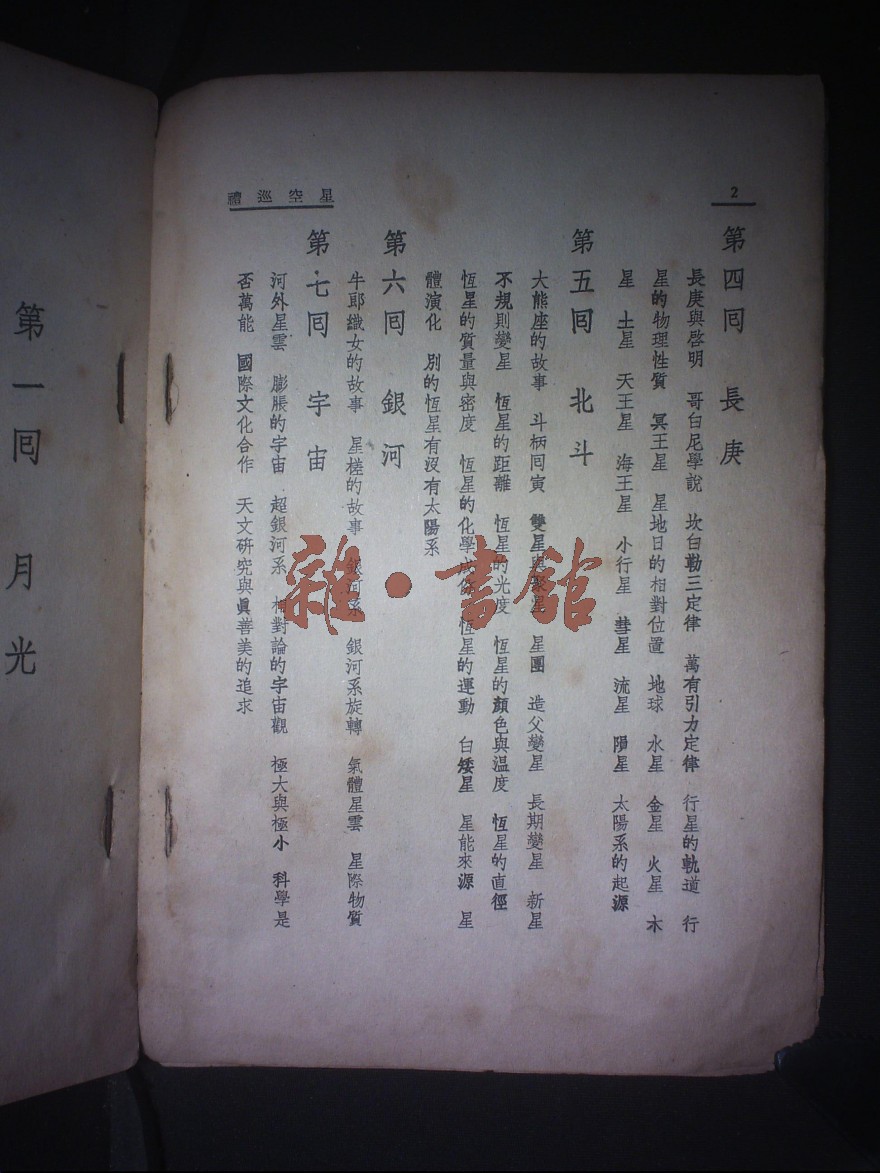 2
星空巡禮
第四囘 長庚
長庚與啓明 哥白尼學說 坎白勒三定律 萬有引力定律 行星的軌道 行
星的物理性質 冥王星 星地日的相對位置 地球 水星 金星 火星 木
星 土星 天王星 海王星 小行星 彗星 流星 隕星 太陽系的起源
第五囘 北斗
大熊座的故事 斗柄囘寅 雙星與聚星 星團 造父變星 長期變星 新星
不規則變星 恆星的距離 恆星的光度 恆星的顏色與温度 恆星的直徑
恆星的質量與密度 恆星的化學成份 恆星的運動 白矮星 星能來源 星
體演化 別的恆星有沒有太陽系
第六囘 銀河
牛郎織女的故事 星槎的故事 銀河系 銀河系旋轉 氣體星雲 星際物質
第七囘 宇宙
河外星雲 膨脹的宇宙 超銀河系 相對論的宇宙觀 極大與極小 科學是
否萬能 國際文化合作 天文研究與眞善美的追求
第一囘 月光
雜·書館